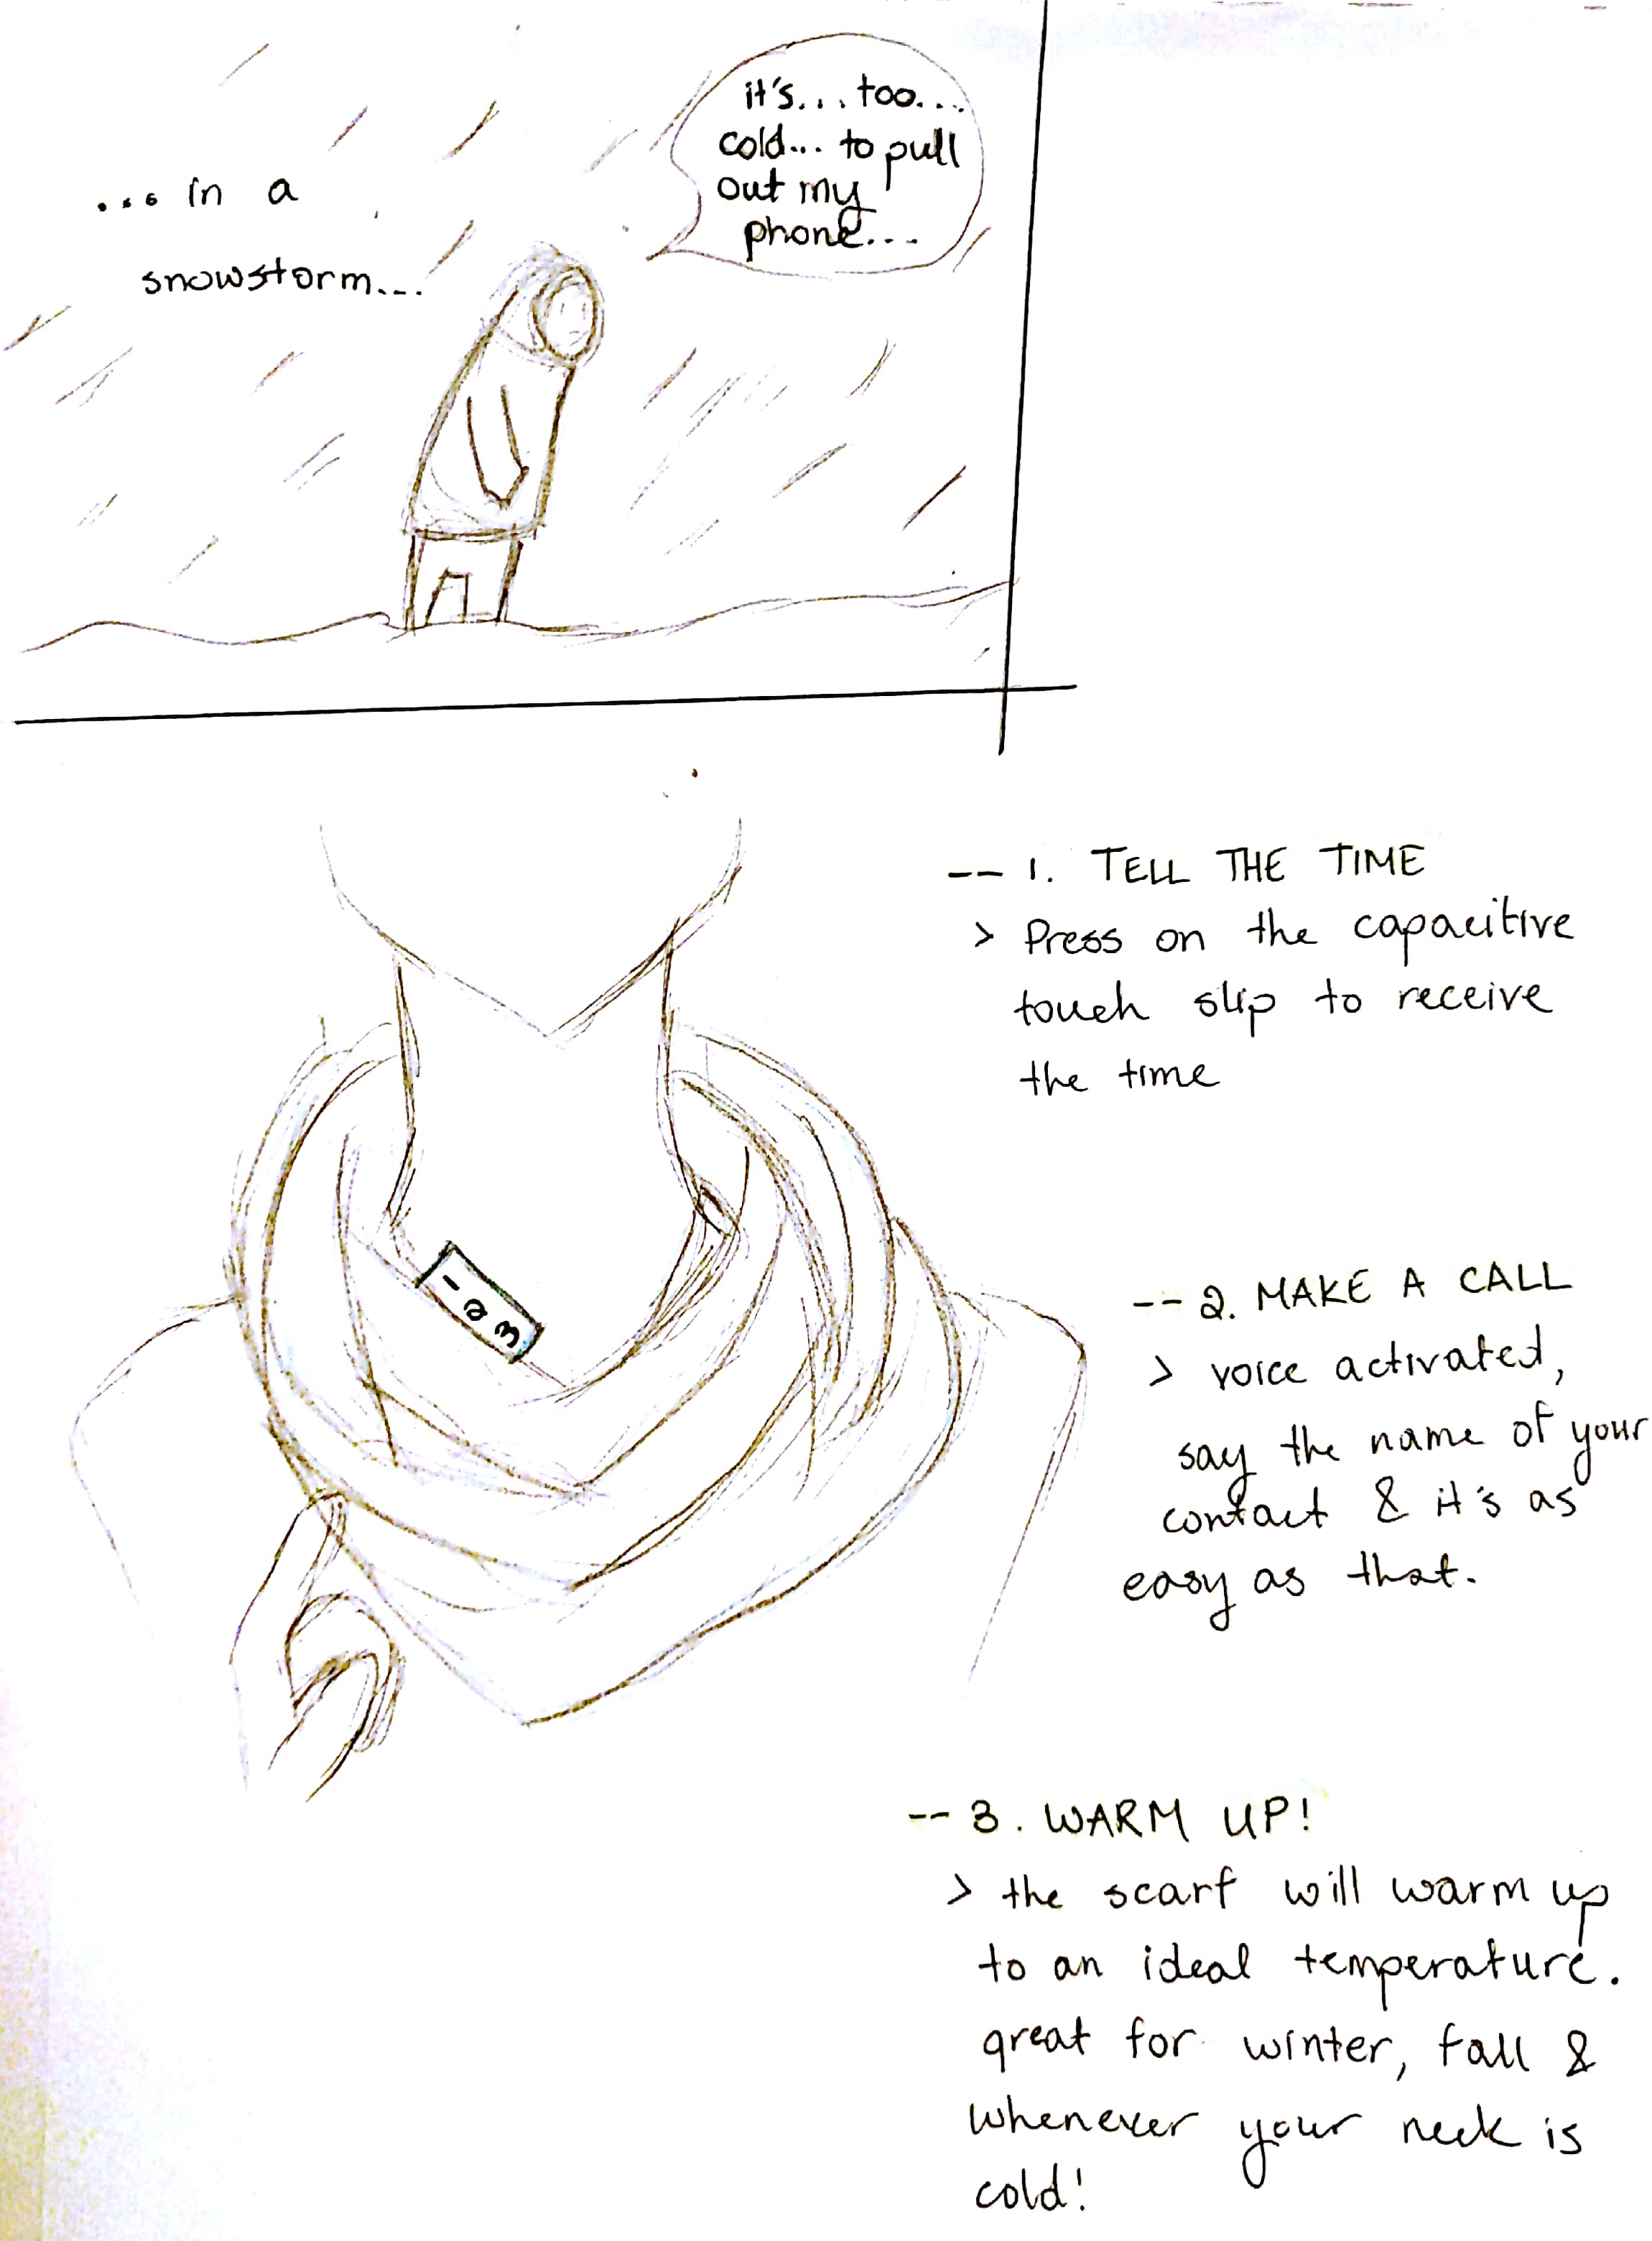 ...in a
snowstorm...
it's...too...
cold...to pull
out my
phone...
1
2
3
-- 1. TELL THE TIME
> Press on the capacitive
touch slip to receive
the time
-- 2. MAKE A CALL
> voice activated,
say the name of your
contact & it's as
easy as that.
-- 3. WARM UP!
> the scarf will warm up
to an ideal temperature.
great for winter, fall &
whenever your neck is
cold!